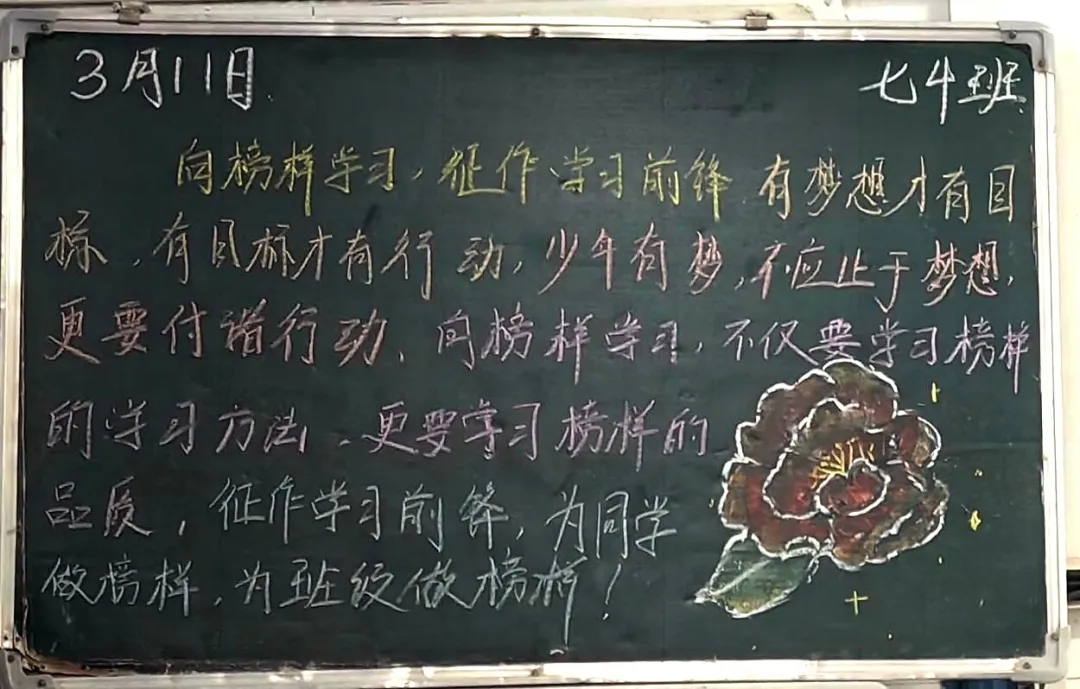 3月11日
七4班
向榜样学习，征作学习前锋 有梦想才有目
标，有目标才有行动，少年有梦，不应止于梦想，
更要付诸行动、向榜样学习，不仅要学习榜样
的学习方法、更要学习榜样的
品质，征作学习前锋，为同学
做榜样，为班级做榜样！